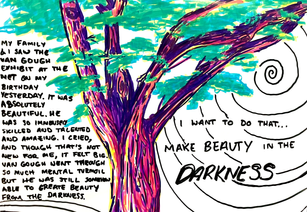 MY FAMILY
& I SAW THE
VAN GOUGH
EXHIBIT AT THE
MET ON MY
BIRTHDAY
YESTERDAY. IT WAS
ABSOLUTELY
BEAUTIFUL. HE
WAS SO IMMENSELY
SKILLED AND TALENTED
AND AMAZING. I CRIED,
AND THOUGH THAT'S NOT
NEW FOR ME, IT FELT BIG.
VAN GOUGH WENT THROUGH
SO MUCH MENTAL TURMOIL
BUT HE WAS STILL SOMEHOW
ABLE TO CREATE BEAUTY
FROM THE DARKNESS.
I WANT TO DO THAT...
MAKE BEAUTY IN THE
DARKNESS